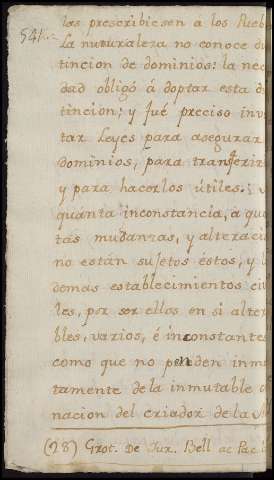 las prescribiesen a los Pueb
541.
La naturaleza no conoce di
tincion de dominios: la nec
dad obligó á doptar esta di
tincion; y fué preciso inv
tar Leyes para asegurar
dominios, para transferir
y para hacerlos útiles.; y
quánta inconstancia, a qua
tas mudanzas, y alteraci
no están sujetos éstos, y l
demas establecimientos civ
les, por ser ellos en si alter
bles, varios, é inconstantes
como que no penden inme
tamente de la inmutable
nacion del criador de la
(28) Grot. De Jur. Bell ac Pac